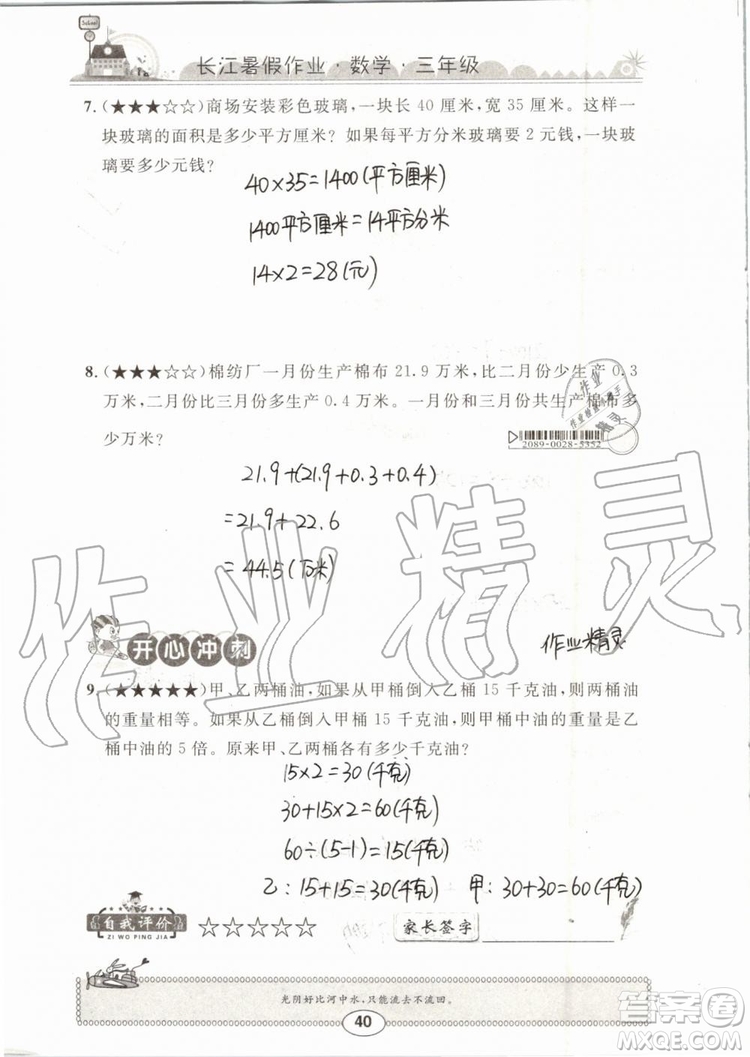 School
长江暑假作业·数学·三年级
7.(★★★☆☆)商场安装彩色玻璃,一块长 40 厘米,宽 35 厘米。这样一
块玻璃的面积是多少平方厘米?如果每平方分米玻璃要 2 元钱,一块玻
璃要多少元钱?
40×35=1400(平方厘米)
1400平方厘米=14平方分米
14×2=28(元)
8.(★★★☆☆)棉纺厂一月份生产棉布 21.9 万米,比二月份少生产 0.3
万米,二月份比三月份多生产 0.4 万米。一月份和三月份共生产棉布多
少万米?
2089-0028-5352
21.9+(21.9+0.3+0.4)
=21.9+22.6
=44.5(万米)
作业精灵
开心冲刺
作业精灵
9.(★★★★★)甲、乙两桶油,如果从甲桶倒入乙桶 15 千克油,则两桶油
的重量相等。如果从乙桶倒入甲桶 15 千克油,则甲桶中油的重量是乙
桶中油的 5 倍。原来甲、乙两桶各有多少千克油?
15×2=30(千克)
30+15×2=60(千克)
60÷(5-1)=15(千克)
乙:15+15=30(千克) 甲:30+30=60(千克)
自我评价 ☆☆☆☆☆ 家长签字
ZI WO PING JIA
光阴好比河中水,只能流去不流回。
40
答案圈
MXQE.COM